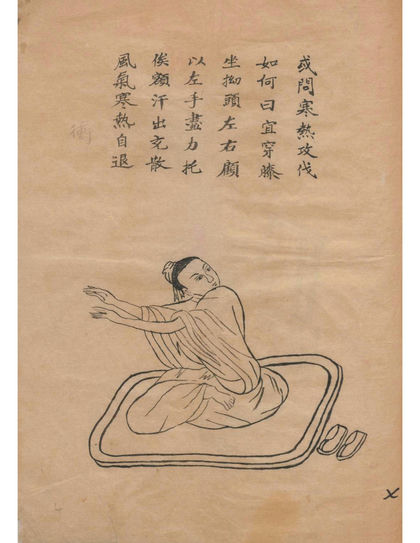 或問寒熱攻伐
如何曰宜穿膝
坐拗頭左右顧
以左手盡力托
俟額汗出充散
風氣寒熱自退